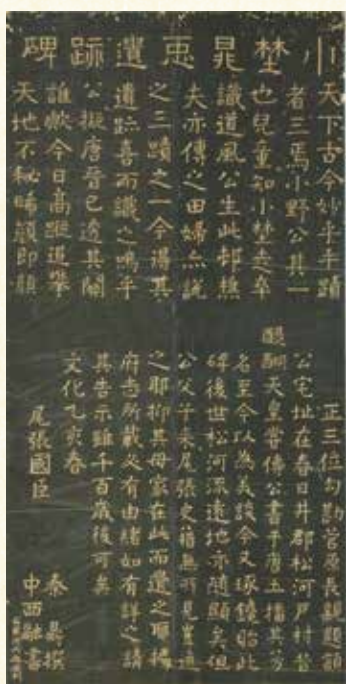 小埜晁𢘑遺跡碑
天下古今妙乎手蹟
者三焉小野公其一
也兒童知小埜走卒
識道風公生此邨樵
夫亦傳之田婦亦說
之三蹟之一今得其
遺跡喜而識之嗚乎
公擬唐晉已造其閫
誰歟今日高蹤追攀
天地不秘晞顏即顏
正三位勾勘菅原長親題額
公宅址在春日井郡松河戶村昔
醍醐天皇嘗傳公書于唐土播其芳
名至今以為美談今又琢鐫貽此
碑後世松河流遺地亦隨顯矣但
公父子來尾張史籍無所見豈
之耶抑其母家在此而遷之耶
府志所載必有由緒如有詳之請
其告示雖千百歲後可矣
文化乙亥春
尾張國臣 秦鼎撰
中西融書